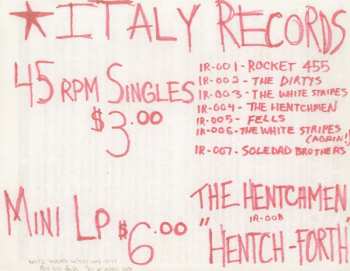 ★ITALY RECORDS
45 RPM SINGLES
$3.00
IR-001-ROCKET 455
IR-002-THE DIRTYS
IR-003-THE WHITE STRIPES
IR-004-THE HENTCHMEN
IR-005-FELLS
IR-006-THE WHITE STRIPES
(AGAIN!)
IR-007-SOLEDAD BROTHERS
MINI LP $6.00
THE HENTCHMEN
IR-008
"HENTCH-FORTH"